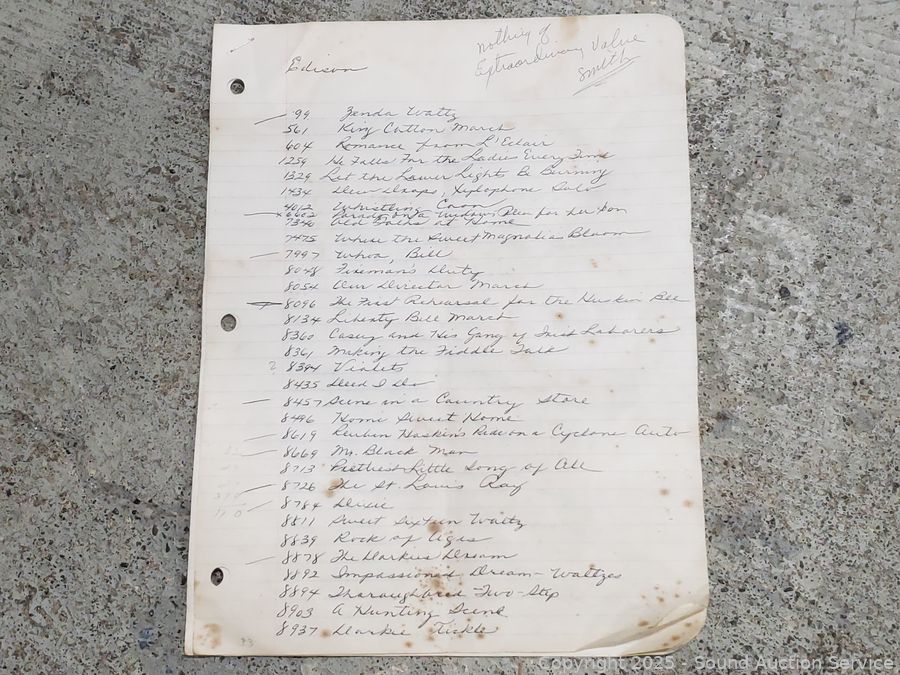 nothing of
Extraordinary Value
Smith
Edison
99 Zenda Waltz
561 King Cotton March
604 Romance from L'Eclair
1259 He Falls For the Ladies Every Time
1329 Let the Lower Lights Be Burning
1434 Dew Drops, Xylophone Solo
4012 Whistling Coon
6602 Parady on a Widows Plea for her Son
7340 Old Folks at Home
7475 Where the Sweet Magnolia Bloom
7997 Whoa, Bill
8048 Fireman's Duty
8054 Our Director March
8096 The First Rehearsal for the Huskin Bee
8134 Liberty Bell March
8360 Casey and His Gang of Irish Laborers
8361 Making the Fiddle Talk
? 8394 Violets
8435 Deed I Do
8457 Scene in a Country Store
8496 Home Sweet Home
8619 Reuben Haskins Ride on a Cyclone Auto
8669 Mr. Black Man
8713 Prettiest Little Song of All
8726 The St Louis Rag
8784 Dixie
8811 Sweet Sixteen Waltz
8839 Rock of Ages
8878 The Darkies Dream
8892 Impassioned Dream-Waltzes
8894 Thoroughbred Two-Step
8903 A Hunting Scene
8937 Darkie Tickle
33
Copyright 2025 - Sound Auction Service